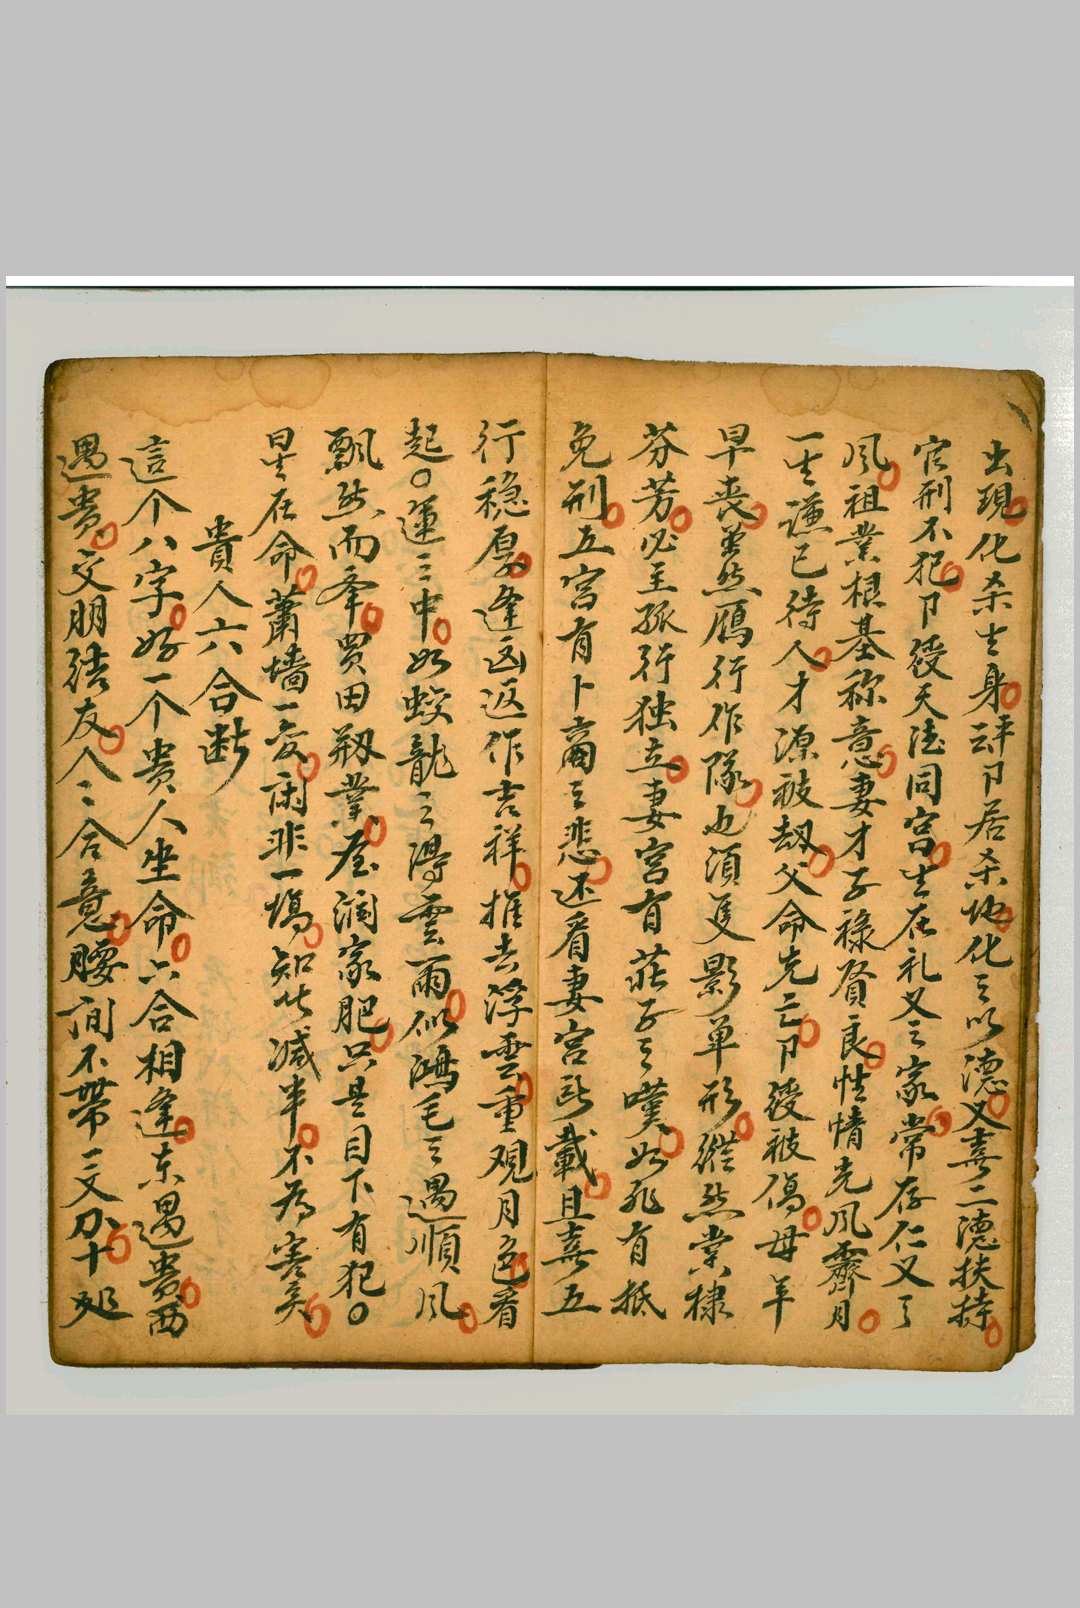 出現化杀生身評卩居杀地化之以德又喜二德扶持
官刑不犯卩後天法同宮生在礼义之家常存仁义之
风祖業根基称意妻才子禄賢良性情光风霽月
一生謙已待人才源被刼父命先亡卩後被傷母年
早丧单然鴈行作隊也須隻影单形縱然棠棣
芬芳必主孤行独立妻宮有莊子之嘆如死有抵
免刑五宮有卜商之悲还看妻宮所載且喜五
行穏厚逢凶返作吉祥推去浮雲重观月色看
起運運中如蛟龍之得雲雨似鴻毛之遇順风
飄然而举買田剏業屋潤家肥只是目下有犯
星在命蕭墙一变闹非一塲知此減半不為害矣
貴人六合断
這个八字好一个貴人坐命六合相逢东遇貴西
遇貴交朋结友人人合意腰间不带一文分十処